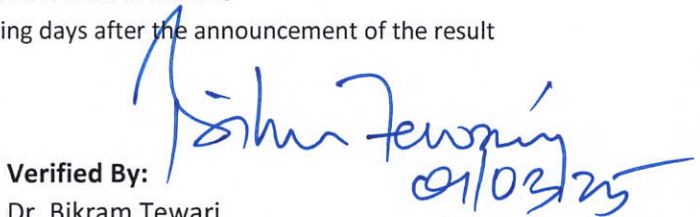 ing days after the announcement of the result
Bikram Tewari
01/03/25
Verified By:
Dr. Bikram Tewari